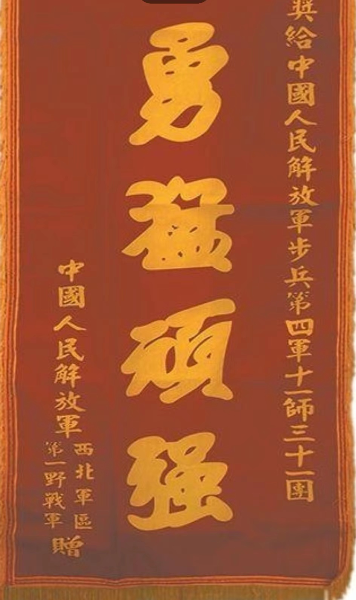 獎給中國人民解放軍步兵第四軍十一師三十一團
勇猛頑强
中國人民解放軍
西北軍區
第一野戰軍
贈